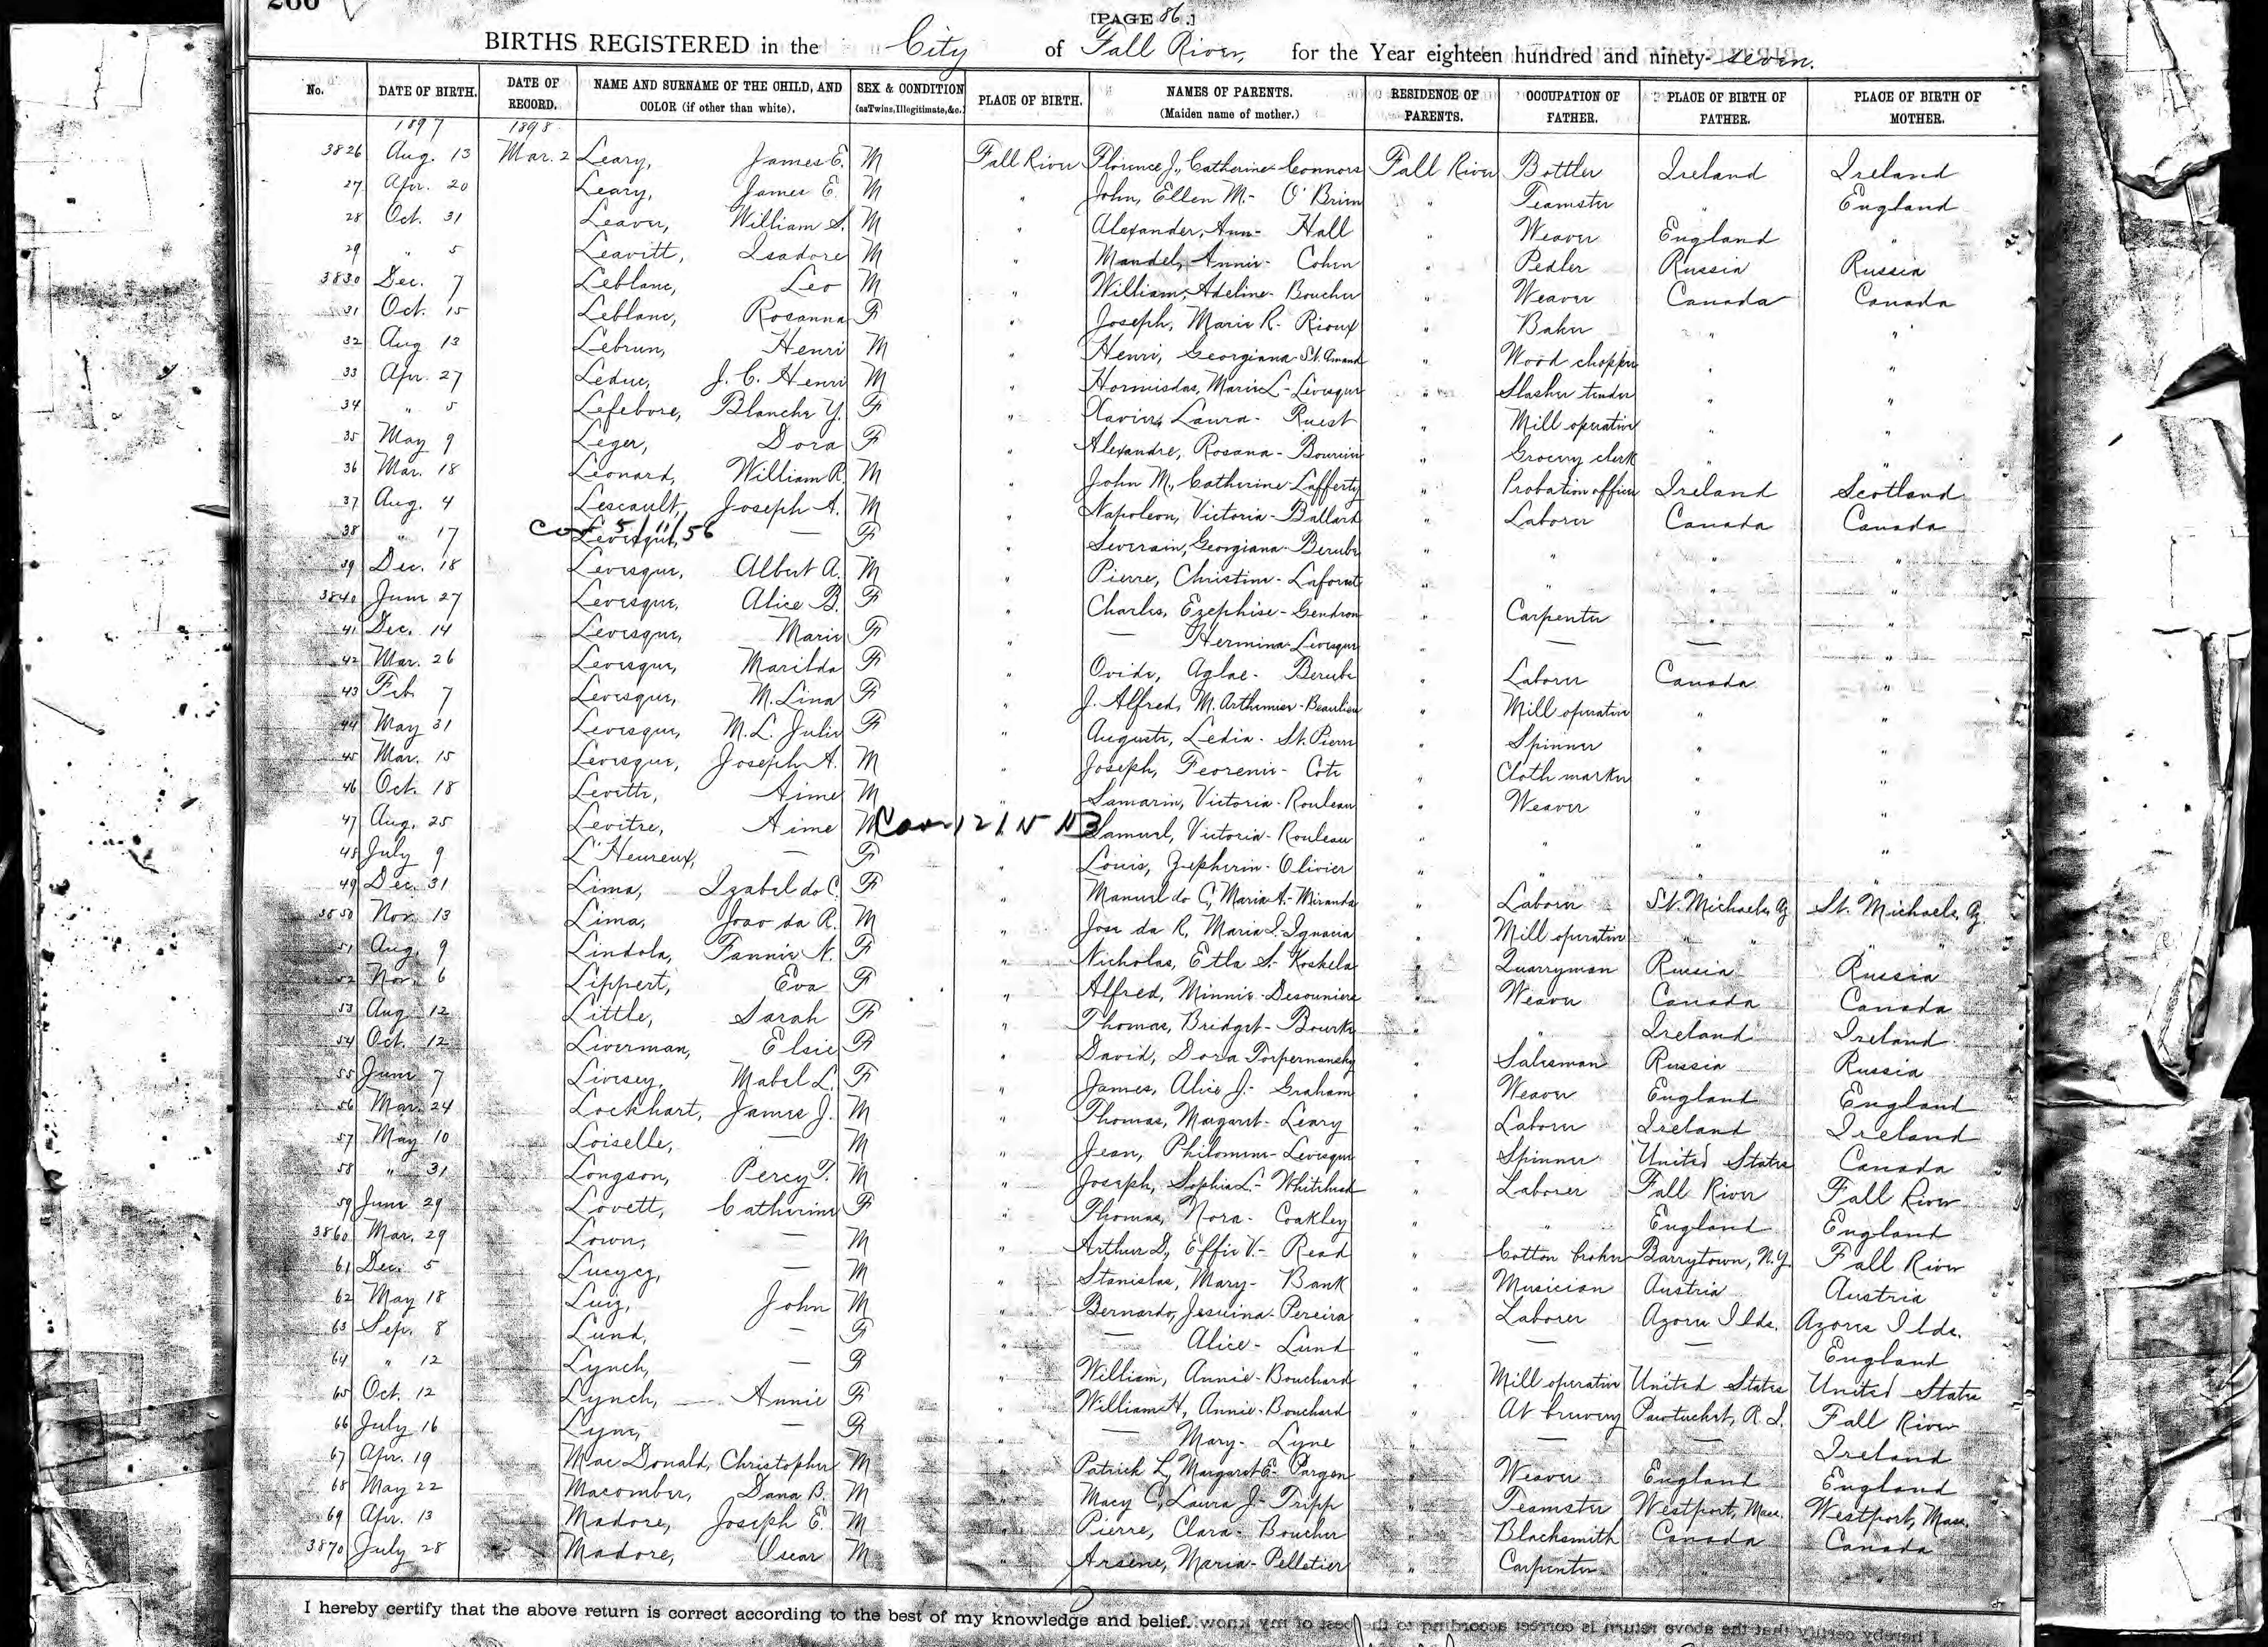 266
[PAGE 86.]
BIRTHS REGISTERED in the City of Fall River, for the Year eighteen hundred and ninety-seven.
No. DATE OF BIRTH. DATE OF RECORD. NAME AND SURNAME OF THE CHILD, AND COLOR (if other than white). SEX & CONDITION (as Twins, Illegitimate, &c.) PLACE OF BIRTH. NAMES OF PARENTS. (Maiden name of mother.) RESIDENCE OF PARENTS. OCCUPATION OF FATHER. PLACE OF BIRTH OF FATHER. PLACE OF BIRTH OF MOTHER.
1897 1898
3826 Aug. 13 Mar. 2 Leary, James E. M Fall River Florence J., Catherine - Connors Fall River Bottler Ireland Ireland
27 Apr. 20 Leary, James E. M " John, Ellen M. - O'Brien " Teamster " England
28 Oct. 31 Leaver, William S. M " Alexander, Ann - Hall " Weaver England "
29 " 5 Leavitt, Isadore M " Mandel, Annie - Cohen " Pedler Russia Russia
3830 Dec. 7 Leblanc, Leo M " William, Adeline - Boucher " Weaver Canada Canada
31 Oct. 15 Leblanc, Rosanna F " Joseph, Marie R. - Rioux " Baker " "
32 Aug. 13 Lebrun, Henri M " Henri, Georgiana - St. Amand " Wood chopper " "
33 Apr. 27 Leduc, J. C. Henri M " Hormisdas, Marie L - Levesque " Slasher tender " "
34 " 5 Lefebvre, Blanche Y. F " Laura - Ruest " Mill operative " "
35 May 9 Leger, Dora F " Alexandre, Rosana - " Grocery clerk " "
36 Mar. 18 Leonard, William R. M " John M., Catherine - Lafferty " Probation officer Ireland Scotland
37 Aug. 4 Lescault, Joseph A. M " Napoleon, Victoria - Ballard " Laborer Canada Canada
38 " 17 Cor 5/11/56 Levesque, — F " Severain, Georgiana - Berube " " " "
39 Dec. 18 Levesque, Albert A. M " Pierre, Christine - Laforest " " " "
3840 June 27 Levesque, Alice B. F " Charles, Ezephise - Gendron " Carpenter " "
41 Dec. 14 Levesque, Marie F " — Hermina - Levesque " — — "
42 Mar. 26 Levesque, Marilda F " Ovide, Aglae - Berube " Laborer Canada "
43 Feb. 7 Levesque, M. Lina F " J. Alfred, M. Arthemise - Beaulieu " Mill operative " "
44 May 31 Levesque, M. L. Julie F " Auguste, Ledia - St. Pierre " Spinner " "
45 Mar. 15 Levesque, Joseph A. M " Joseph, Feorenie - Cote " Cloth marker " "
46 Oct. 18 Levette, Aime M " Samarin, Victoria - Rouleau " Weaver " "
47 Aug. 25 Levitre, Aime M Samuel, Victoria - Rouleau " " " "
48 July 9 L'Heureux, — F " Louis, Zepherin - Olivier " " " "
49 Dec. 31 Lima, Izabel do C. F " Manuel do C, Maria A. - Miranda " Laborer St. Michaels, Az. St. Michaels, Az.
3850 Nov. 13 Lima, Joao da R. M " Jose da R, Maria I. Ignacia " Mill operative " " " "
51 Aug. 9 Lindola, Fannie N. F " Nicholas, Etla S. - Koskela " Quarryman Russia Russia
52 Nov. 6 Lippert, Eva F " Alfred, Minnie - Desouniere " Weaver Canada Canada
53 Aug. 12 Little, Sarah F " Thomas, Bridget - Bourke " " Ireland Ireland
54 Oct. 12 Liverman, Elsie F " David, Dora Torpernansky " Salesman Russia Russia
55 June 7 Livesey, Mabel L. F " James, Alice J. - Graham " Weaver England England
56 Mar. 24 Lockhart, James J. M " Thomas, Margaret - Leary " Laborer Ireland Ireland
57 May 10 Loiselle, — M " Jean, Philomene - Levesque " Spinner United States Canada
58 " 31 Longson, Percy T. M " Joseph, Sophia L. - Whitehead " Laborer Fall River Fall River
59 June 29 Lovett, Catherine F " Thomas, Nora - Coakley " " England England
3860 Mar. 29 Lown, — M " Arthur D., Effie V. - Read " Cotton broker Barrytown, N.Y. Fall River
61 Dec. 5 Lucycz, — M " Stanislas, Mary - Bank " Musician Austria Austria
62 May 18 Luiz, John M " Bernardo, Jesuina - Pereira " Laborer Azores Ilds. Azores Ilds.
63 Sep. 8 Lund, — F " — Alice - Lund " — — England
64 " 12 Lynch, — F " William, Annie - Bouchard " Mill operative United States United States
65 Oct. 12 Lynch, Annie F " William H, Annie - Bouchard " At brewery Pawtucket, R.I. Fall River
66 July 16 Lyne, — F " — Mary - Lyne " — — Ireland
67 Apr. 19 MacDonald, Christopher M " Patrick L, Margaret E - Pargen " Weaver England England
68 May 22 Macomber, Dana B. M " Macy C., Laura J. - Tripp " Teamster Westport, Mass. Westport, Mass.
69 Apr. 13 Madore, Joseph E. M " Pierre, Clara - Boucher " Blacksmith Canada Canada
3870 July 28 Madore, Oscar M " Arsene, Maria - Pelletier " Carpenter " "
I hereby certify that the above return is correct according to the best of my knowledge and belief.